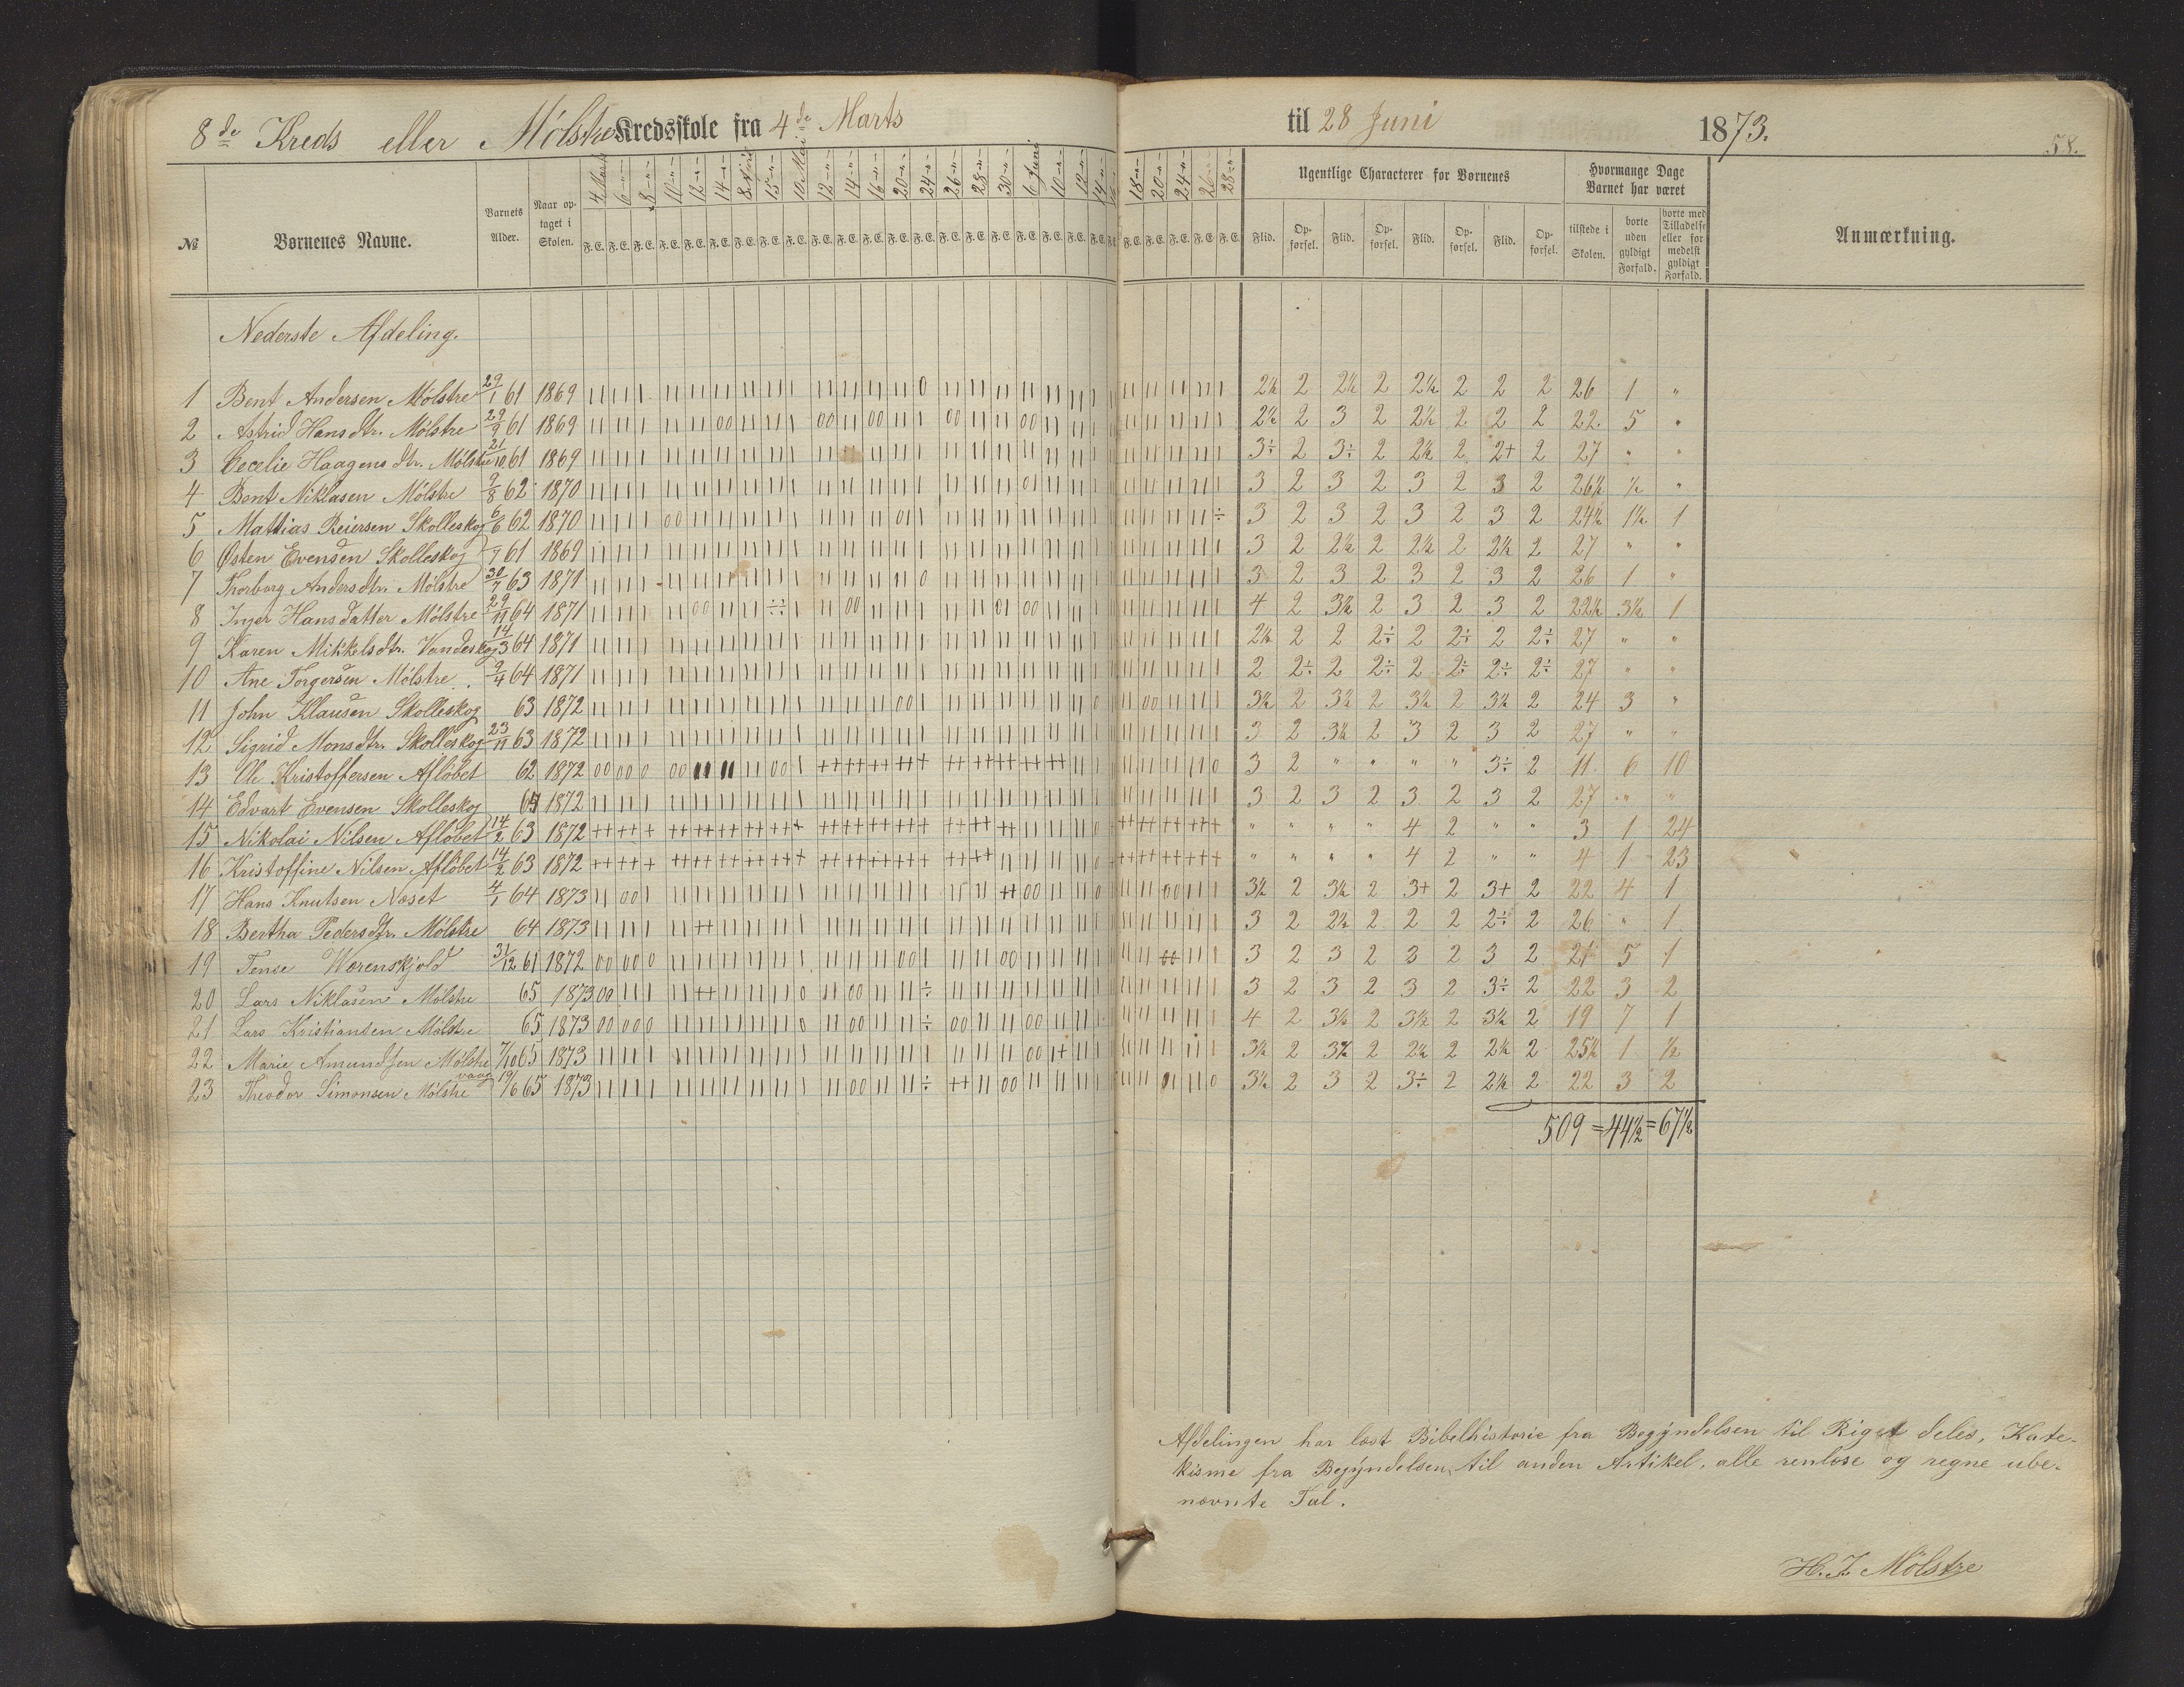 8de Kreds eller Mølstre Kredsskole fra 4de Marts til 28 Juni 1873.
58.
№ Børnenes Navne. Barnets Alder. Naar optaget i Skolen. Ugentlige Characterer for Børnenes Hvormange Dage Barnet har været Anmærkning.
4 Marts 6 -"- 8 -"- 10 -"- 12 -"- 14 -"- 8 April 15 -"- 10 Mai 12 -"- 14 -"- 16 -"- 20 -"- 24 -"- 26 -"- 28 -"- 30 -"- 6 Juni 10 -"- 12 -"- 14 -"- 18 -"- 20 -"- 24 -"- 26 -"- 28 -"-
F. E. F. E. F. E. F. E. F. E. F. E. F. E. F. E. F. E. F. E. F. E. F. E. F. E. F. E. F. E. F. E. F. E. F. E. F. E. F. E. F. E. F. E. F. E. F. E. F. E. F. E.
Flid. Opførsel. Flid. Opførsel. Flid. Opførsel. Flid. Opførsel. tilstede i Skolen. borte uden gyldigt Forfald. borte med Tilladelse eller formedelst gyldigt Forfald.
Nederste Afdeling.
1 Bent Andersen Mølstre 29/1 61 1869 2½ 2 2½ 2 2½ 2 2 2 26 1 "
2 Astrid Hansdtr. Mølstre 29/9 61 1869 2½ 2 3 2 2½ 2 2 2 22 5 "
3 Cecelie Haagensdtr. Mølstre 21/10 61 1869 3÷ 2 3÷ 2 2½ 2 2+ 2 27 " "
4 Bent Niklasen Mølstre 9/8 62 1870 3 2 3 2 3 2 3 2 26½ ½ "
5 Mattias Reiersen Skolleskog 6/6 62 1870 3 2 3 2 3 2 3 2 24½ 1½ 1
6 Østen Evensen Skolleskog 61 1869 3 2 2½ 2 2½ 2 2½ 2 27 " "
7 Thorborg Andersdtr. Mølstre 30/7 63 1871 3 2 3 2 3 2 3 2 26 1 "
8 Inger Hansdatter Mølstre 29/11 64 1871 4 2 3½ 2 3 2 3 2 22½ 3½ 1
9 Karen Mikkelsdtr. Vandeskog 14/3 64 1871 2½ 2 2 2÷ 2 2÷ 2 2÷ 27 " "
10 Ane Torgersen Mølstre 9/4 64 1871 2 2÷ 2 2÷ 2 2÷ 2÷ 2÷ 27 " "
11 John Klausen Skolleskog 63 1872 3½ 2 3½ 2 3½ 2 3½ 2 24 3 "
12 Sigrid Monsdtr. Skolleskog 23/11 63 1872 3 2 3½ 2 3 2 3 2 27 " "
13 Ole Kristoffersen Afløbet 62 1872 3 2 " " " " 3÷ 2 11 6 10
14 Edvart Evensen Skolleskog 64 1872 3 2 3 2 3 2 3 2 27 " "
15 Nikolai Nilsen Afløbet 14/2 63 1872 " " " " 4 2 " " 3 1 24
16 Kristoffine Nilsen Afløbet 14/2 63 1872 " " " " 4 2 " " 4 1 23
17 Hans Knutsen Næset 4/1 64 1873 3½ 2 3½ 2 3+ 2 3+ 2 22 4 1
18 Bertha Pedersdtr. Mølstre 64 1873 3 2 2½ 2 2 2 2÷ 2 26 " 1
19 Tense Wærenskjold 31/12 61 1872 3 2 3 2 3 2 3 2 21 5 1
20 Lars Niklasen Mølstre 65 1873 3 2 3 2 3 2 3÷ 2 22 3 2
21 Lars Kristiansen Mølstre 65 1873 4 2 3½ 2 3½ 2 3½ 2 19 7 1
22 Marie Amundsen Mølstre 7/10 65 1873 3½ 2 3½ 2 2½ 2 2½ 2 25½ 1 ½
23 Theodor Simonsen Mølstrevaag 19/6 65 1873 3½ 2 3 2 3÷ 2 2½ 2 22 3 2
509 = 44½ = 67½
Afdelingen har læst Bibelhistorie fra Begyndelsen til Riget deles, Kate-
kisme fra Begyndelsen til anden Artikel, alle renlæse og regne ube-
nævnte Tal.
H. J. Mölstre